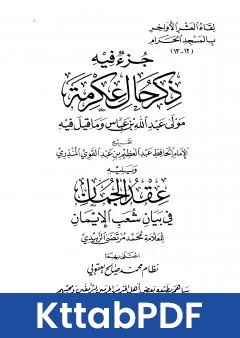 لقاء العشر الأواخر
بالمسجد الحرام
(١٢-١٣)
جزء فيه
ذكر حال عكرمة
مولى عبد الله بن عباس وما قيل فيه
تخريج
الإمام الحافظ عبد العظيم بن عبد القوي المنذري
ويليه
عقد الجمان
في بيان شعب الإيمان
للعلامة محمد مرتضى الزبيدي
اعتنى بهما
نظام محمد صالح يعقوبي
ساهم بطبعه بعض أهل الخير من الحرمين الشريفين ومحبيهم
KttabPDF